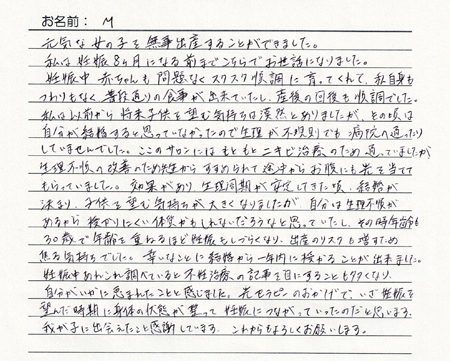 お名前： M
元気な女の子を無事出産することができました。
私は妊娠8ヶ月になる前までこちらでお世話になりました。
妊娠中赤ちゃんも問題なくスクスク順調に育ってくれて、私自身も
つわりもなく普段通りの食事が出来ていたし、産後の回復も順調でした。
私は以前から将来子供を望む気持ちは漠然とありましたが、その頃は
自分が結婚すると思っていなかったので生理が不規則でも病院の通ったり
していませんでした。ここのサロンにはもともとニキビ治療のため通っていましたが
生理不順の改善のため先生からすすめられて途中からお腹にも光を当てて
もらっていました。効果があり生理周期が安定してきた頃、結婚が
決まり、子供を望む気持ちが大きくなりましたが、自分は生理不順が
あるから授かりにくい体質かもしれないだろうなと思っていたし、その時年齢も
30歳で年齢を重ねるほど妊娠もしづらくなり、出産のリスクも増すため
焦る気持ちでした。幸いなことに結婚から一年内に授かることが出来ました。
妊娠中あれこれ調べていると不妊治療の記事を目にすることも多くなり、
自分がいかに恵まれたことと感じました。光セラピーのおかげで、いざ妊娠を
望んだ時期に身体の状態が整って妊娠につながっていったのだと思います。
我が子に出会えたこと感謝しています。これからもよろしくお願いします。